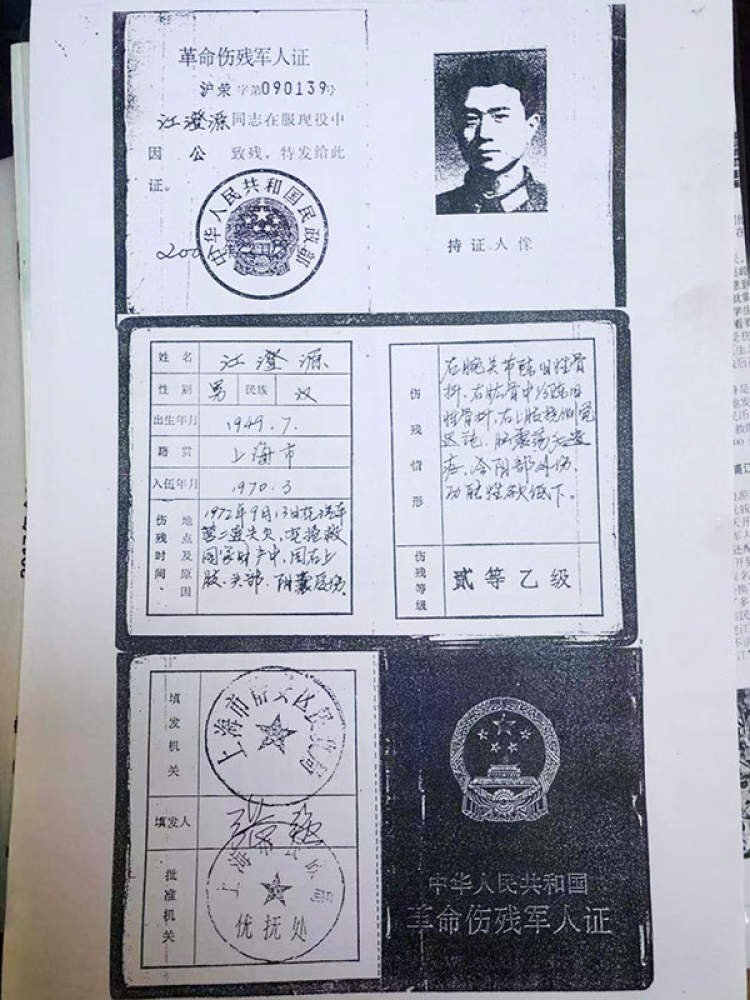 革命伤残军人证
沪荣字第090139号
江澄源同志在服现役中
因公致残，特发给此
证。
中华人民共和国民政部
持证人像
姓名 江澄源
性别 男 民族 汉
出生年月 1949.7.
籍贯 上海市
入伍年月 1970.3
伤残时间、地点及原因
1972年9月13日
失火，抢救
国家财产中，因右上
肢、头部、阴囊
伤残情形
右腕关节陈旧性骨
折，右肱骨中1/3陈旧
性骨折，右上肢桡侧觉
迟钝，脑震荡后遗
症，会阴部外伤，
功能性欲低下。
伤残等级
贰等乙级
填发机关
上海市
填发人
批准机关
上海市
优抚处
中华人民共和国
革命伤残军人证